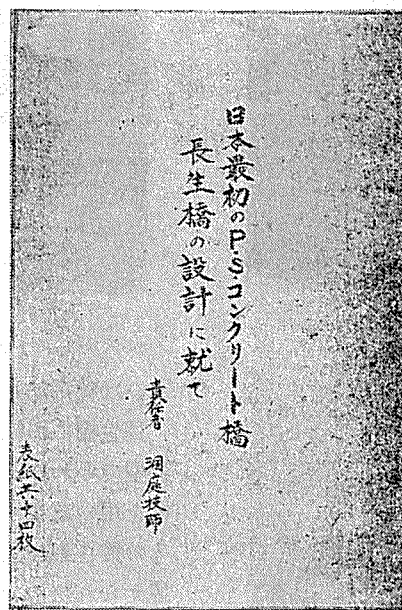 日本最初のP.S.コンクリート橋
長生橋の設計に就て
責任者 洞庭技師
表紙共十四枚